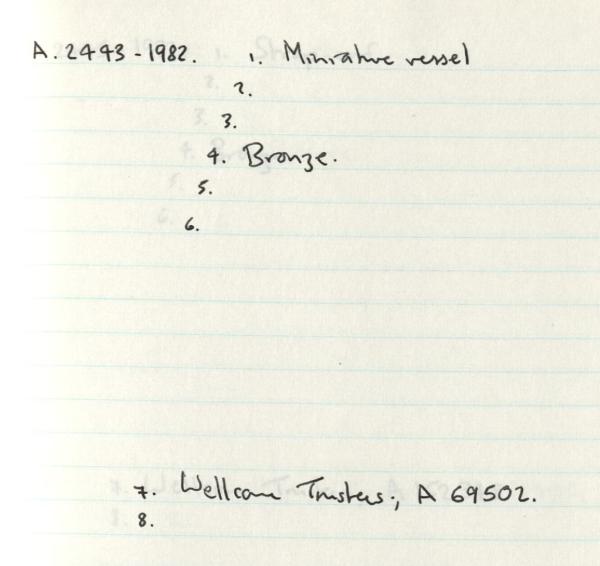 A. 2443-1982. 1. Miniature vessel
2.
3.
4. Bronze.
5.
6.
7. Wellcome Trustees; A 69502.
8.